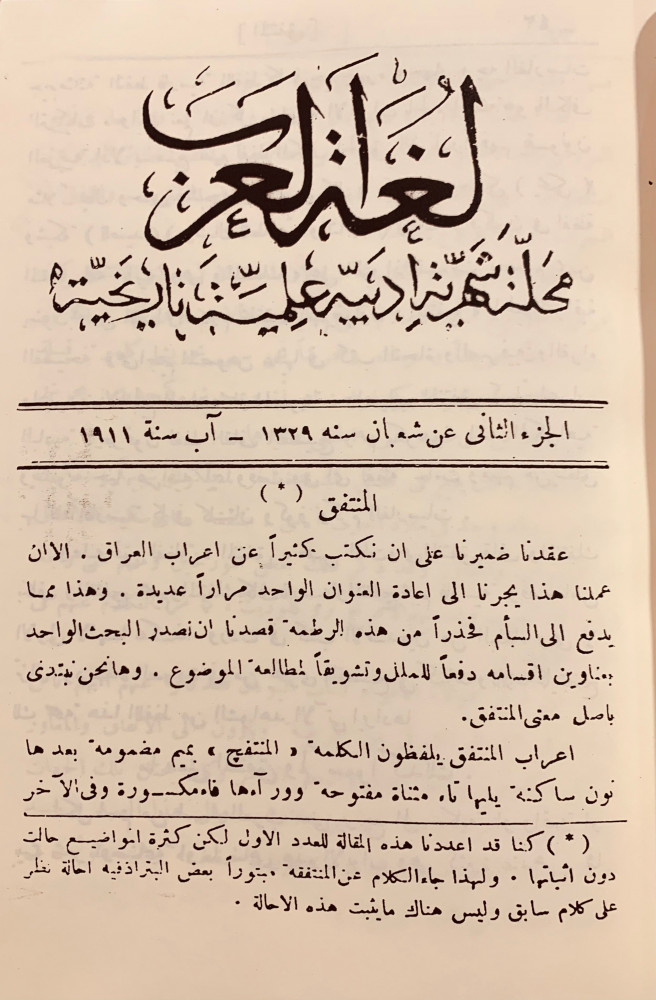 لغة العرب
مجلة شهرية ادبية علمية تاريخية
الجزء الثانى عن شعبان سنه ١٣٢٩ – آب سنة ١٩١١
المنتفق (*)
عقدنا ضميرنا على ان نكتب كثيراً عن اعراب العراق . الاان
عملنا هذا يجرنا الى اعادة العنوان الواحد مراراً عديدة . وهذا مما
يدفع الى السأم فحذراً من هذه الرطمة قصدنا ان نصدر البحث الواحد
بعناوين اقسامه دفعاً للملل وتشويقاً لمطالعة الموضوع . وها نحن نبتدئ
باصل معنى المنتفق.
اعراب المنتفق يلفظون الكلمة « المنتفج » بميم مضمومة بعدها
نون ساكنة يليها تاء مثناة مفتوحة وورآءها فاء مكسورة وفى الآخر
(*) كنا قد اعددنا هذه المقالة للعدد الاول لكن كثرة المواضيع حالت
دون اثباتها . ولهذا جاء الكلام عن المنتفقة مبتوراً بعض البتر اذ فيه احالة نظر
على كلام سابق وليس هناك ما يثبت هذه الاحالة .